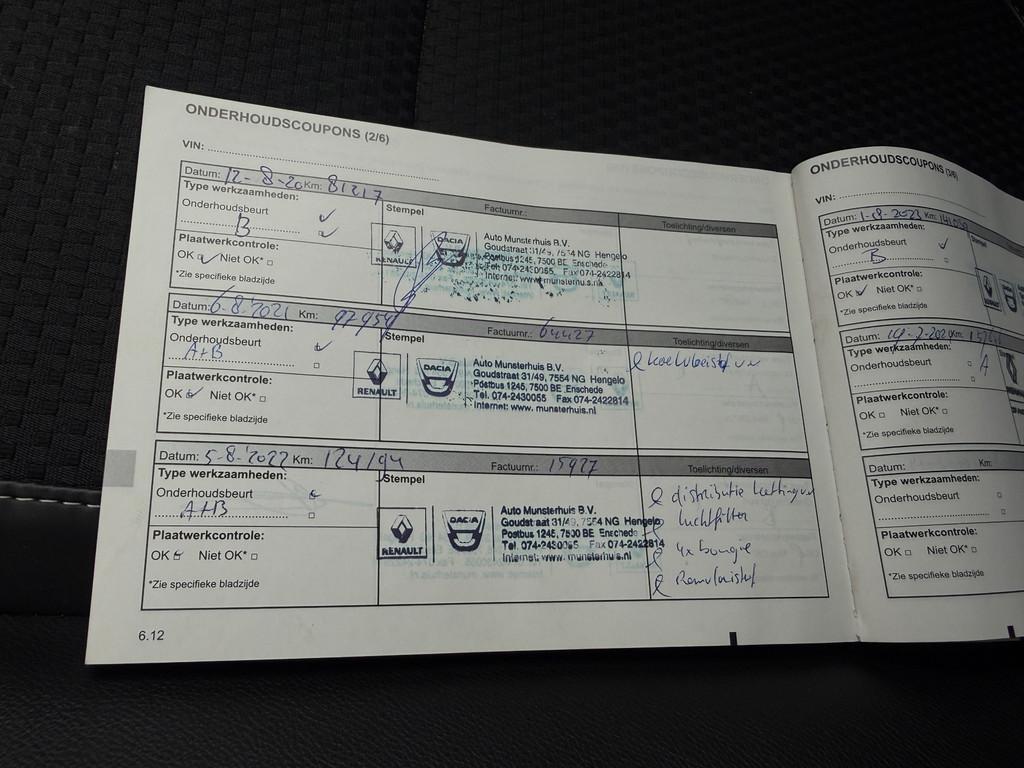 ONDERHOUDSCOUPONS (2/6)
VIN:
Datum: 12-8-20 Km: 81217
Type werkzaamheden:
Onderhoudsbeurt
B
Plaatwerkcontrole:
OK Niet OK*
*Zie specifieke bladzijde
Stempel
Factuurnr.:
Toelichting/diversen
RENAULT
DACIA
Auto Munsterhuis B.V.
Goudstraat 31/49, 7554 NG Hengelo
Postbus 1245, 7500 BE Enschede
Tel. 074-2430055 Fax 074-2422814
Internet: www.munsterhuis.nl
Datum: 6-8-2021 Km: 97954
Type werkzaamheden:
Onderhoudsbeurt
A+B
Plaatwerkcontrole:
OK Niet OK*
*Zie specifieke bladzijde
Stempel
Factuurnr.: 64427
Toelichting/diversen
RENAULT
DACIA
Auto Munsterhuis B.V.
Goudstraat 31/49, 7554 NG Hengelo
Postbus 1245, 7500 BE Enschede
Tel. 074-2430055 Fax 074-2422814
Internet: www. munsterhuis.nl
Datum: 5-8-2022 Km: 124194
Type werkzaamheden:
Onderhoudsbeurt
A+B
Plaatwerkcontrole:
OK Niet OK*
*Zie specifieke bladzijde
Stempel
Factuurnr.: 15927
Toelichting/diversen
RENAULT
DACIA
Auto Munsterhuis B.V.
Goudstraat 31/49, 7554 NG Hengelo
Postbus 1245, 7500 BE Enschede
Tel. 074-2430055 Fax 074-2422814
Internet: www. munsterhuis.nl
distributie
luchtfilter
4x bougie
Remvloeistof
6.12
ONDERHOUDSCOUPONS (3/6)
VIN:
Datum: 1-8-2023 Km:
Type werkzaamheden:
Onderhoudsbeurt
B
Plaatwerkcontrole:
OK Niet OK*
*Zie specifieke bladzijde
Stempel
Datum: Km:
Type werkzaamheden:
Onderhoudsbeurt
A
Plaatwerkcontrole:
OK Niet OK*
*Zie specifieke bladzijde
Datum: Km:
Type werkzaamheden:
Onderhoudsbeurt
Plaatwerkcontrole:
OK Niet OK*
*Zie specifieke bladzijde